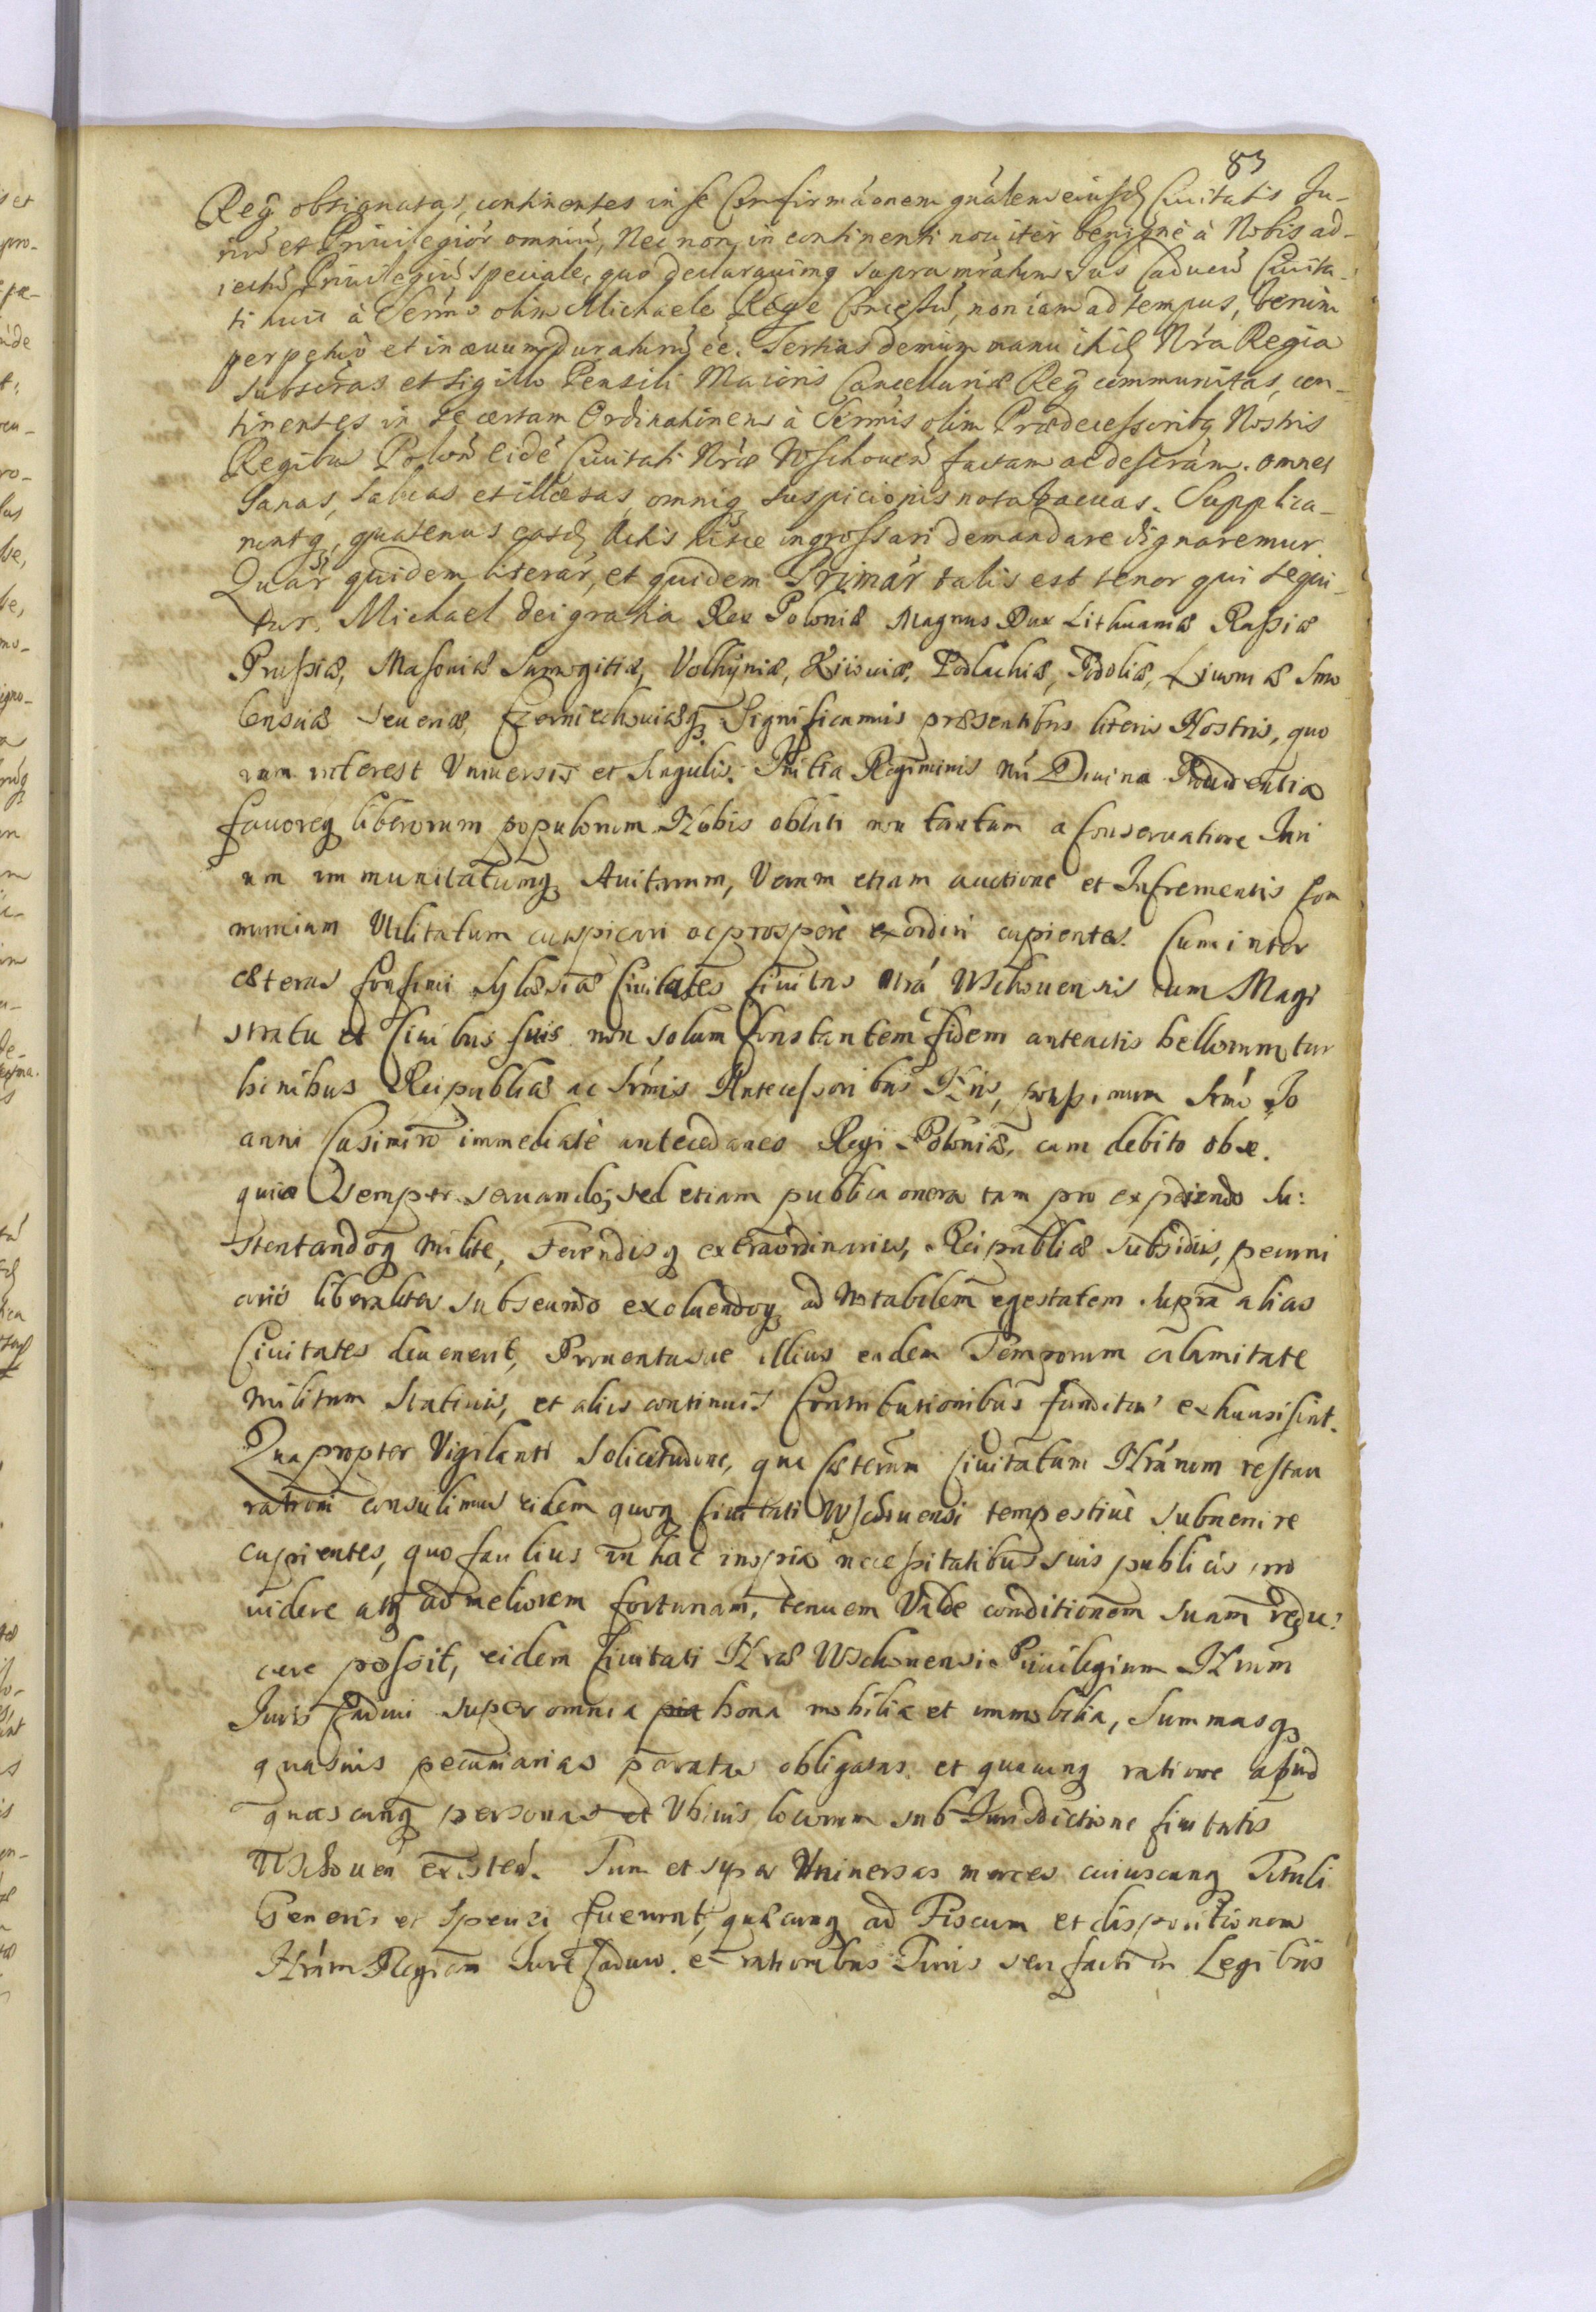 83
Reg obsignatas, continentes in se Confirmáonem gnálem eiusd Ciuitatis Ju-
riu et Priuilegiór omniu, Nec non, in continenti nouiter benignè à Nobis ad-
iectu Priuilegiu speciale, quó declarauimq supra mrátum Jus Caducu Ciuita-
ti huic à Sermo olim Michaele Rege Concessu, non iam ad tempus, verum
perpetuò et in æuum duraturu éé. Tertias demum manu itid Nra Regia
subscras et sigillo Pensili Maioris Cancellariæ Reg communitas, con-
tinentes in se certam Ordinationem à Sermis olim Prædecessoribq Nostris
Regibus Polon eidé Ciuitati Nræ Wschouen factam ac descrám. omnes
sanas, saluas et illæsas, omniq suspicionis nota vacuas. Supplica-
runtq, quatenus easd Actis hisce ingrossari demandare dignaremur.
Quár quidem literár, et quidem Primár talis est tenor qui sequi-
tur. Michael Dei gratia Rex Poloniæ Magnus Dux Lithuaniæ Russiæ
Prussiæ, Masouiæ Samogitiæ, Volhyniæ, Kiiouiæ, Podlachiæ, Podoliæ, Liuoniæ Smo
lensciæ Seueriæ, Czerniechouiæq Significamus præsentibus literis Nostris, quo
rum interest Vniuersis et singulis. Initia Regiminis Nri Diuina Prouidentia
fauoreq liberorum populorum Nobis oblati non tantum a Conseruatione Juri
um immunitatumq Auitarum, Verum etiam auctione et Incrementis Com
munium Vtilitatum auspicari ac prosperè exordiri cupientes. Cum inter
cæteras Confinii Sylæsiæ Ciuitates Ciuitas Nrá Wschouensis cum Magi
stratu et Ciuibus suis non solum Constantem fidem anteactis bellorum tur
binibus Reipublicæ ac Srmis Antecessoribus Nris, Srmo Jo
anni Casimiro immediatè antecedaneo Regi Poloniæ, cum debito obse.
quio semper seruando, sed etiam publica onera tam pro expediendo su:
stentandoq milite, Ferendisq extraordinariis, Reipublicæ subsidiis, pecuni
ariis liberaliter subeundo exoluendoq ad Notabilem egestatem supra alias
Ciuitates deuenerit, Prouentusue illius eadem Temporum calamitate
militum Statiuis, et aliis continuis Contributionibus funditus exhausi sint.
Quapropter Vigilanti Solicitudine, qua Cæterum Ciuitatum Nrárum restau
rationi consulimus eidem quoq Ciuitati Wschouensi tempestiuè subuenire
cupientes, quo facilius in hac inopia necessitatibus suis publicis pro
uidere atq ad meliorem fortunam, tenuem Valde conditionem suam redu:
cere possit, eidem Ciuitati Nræ Wschouensi Priuilegium Nrum
Juris Caduci super omnia bona mobilia et immobilia, Summasq
quasuis pecuniarias paratas obligatas et quacunq ratione apud
quascunq personas et Vbiuis locorum sub Jurisdictione Ciuitatis
Wschouen existen. Tum et super Vniuersas merces cuiuscunq Tituli
Generis et Speciei fuerint, quæcunq ad Fiscum et dispositionem
Nrám Regiam Jure Caduco. et rationibus Juris seu facti in Legibus